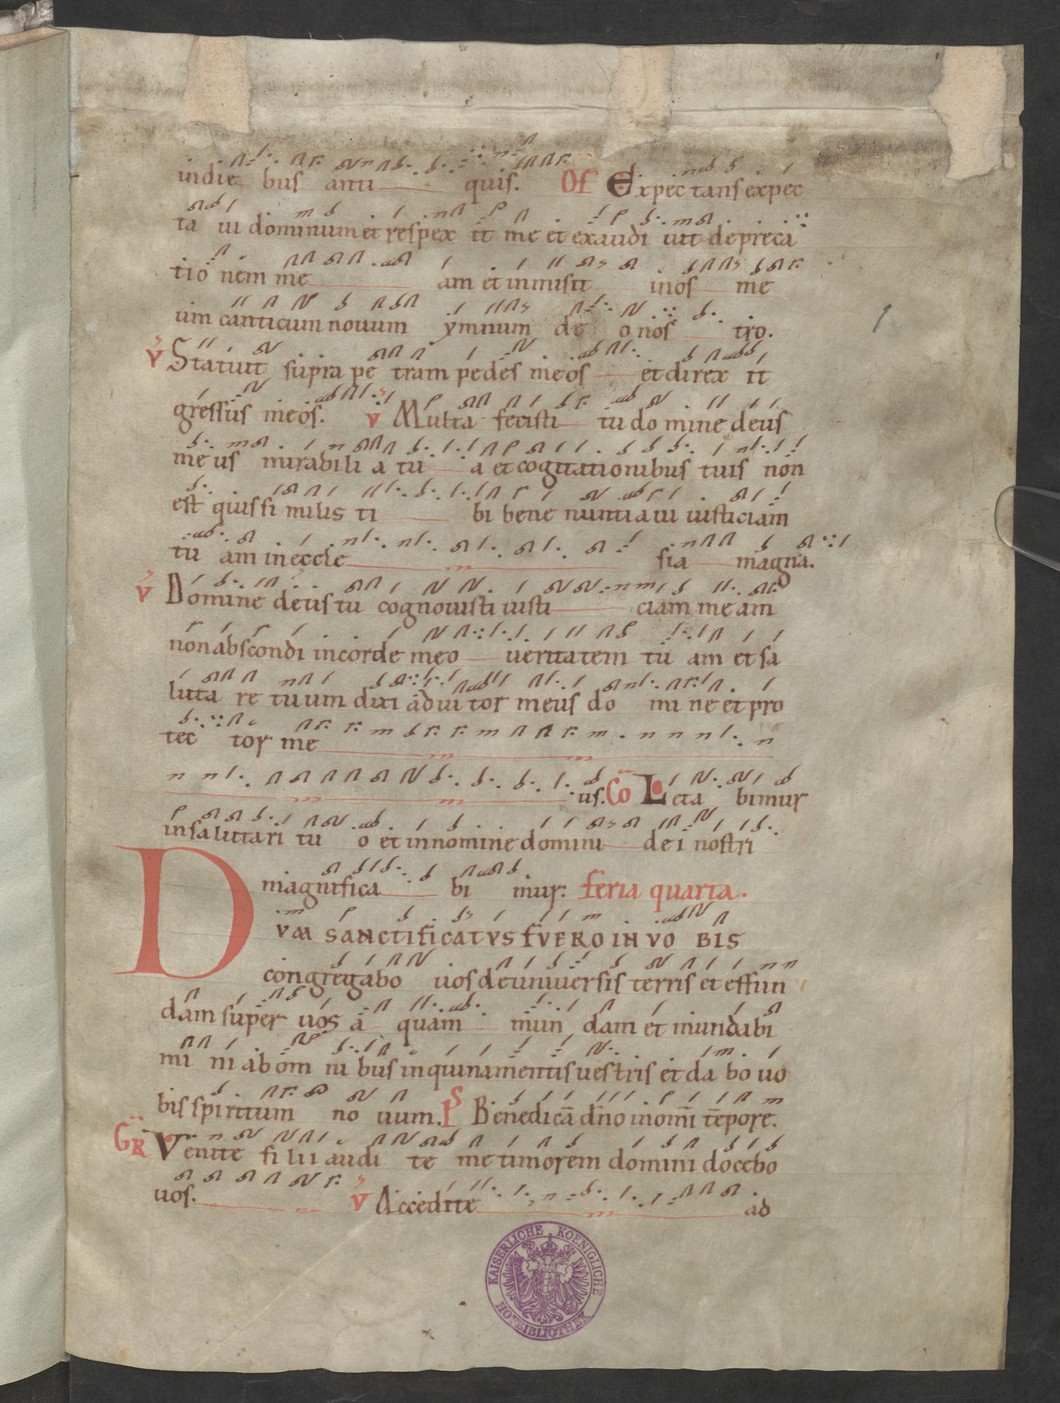 indie bus anti quis. Of Expec tans expec
ta ui dominum et respex it me et exaudi uit depreca
tio nem me am et inmisit inos me
um canticum nouum ymnum de o nos tro.
V Statuit supra pe tram pedes meos et direx it
gressus meos. V Multa fecisti tu do mine deus
me us mirabili a tu a et cogitationibus tuis non
est quis si milis ti bi bene nuntiaui iusticiam
tu am in eccle sia magna.
V Domine deus tu cognouisti iusti ciam me am
non abscondi in corde meo ueritatem tu am et sa
luta re tuum dixi adiu tor meus do mi ne et pro
tec tor me
us. Co Leta bimur
in salutari tu o et in nomine domini de i nostri
magnifica bi mur: feria quarta.
DVM SANCTIFICATVS FVERO IN VO BIS
congregabo uos de uniuersis terris et effun
dam super uos a quam mun dam et mundabi
mi ni ab om ni bus inquinamentis uestris et da bo uo
bis spiritum no uum. Ps Benedicā dn̄o in om̄i tēpore.
GR Venite fi lii audi te me timorem domini docebo
uos. V Accedite ad
KAISERLICHE KOENIGLICHE
HOFBIBLIOTHEK